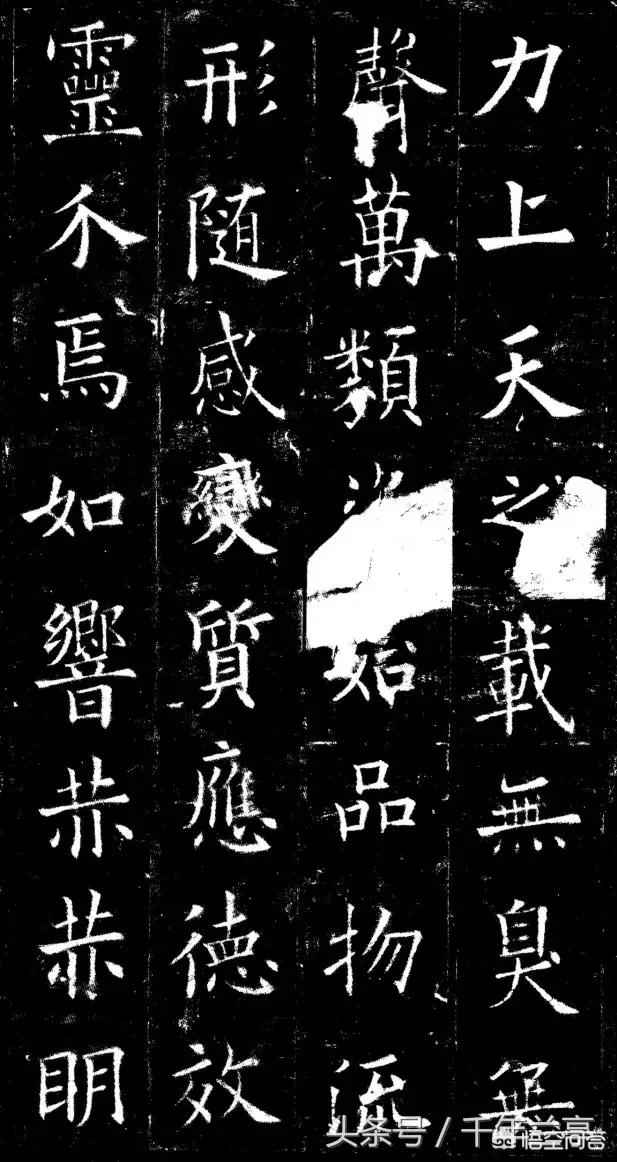 力上天之載無臭無
聲萬類始品物流
形隨感變質應德效
靈介焉如響赫赫明
头条号 / 千年兰亭
悟空问答